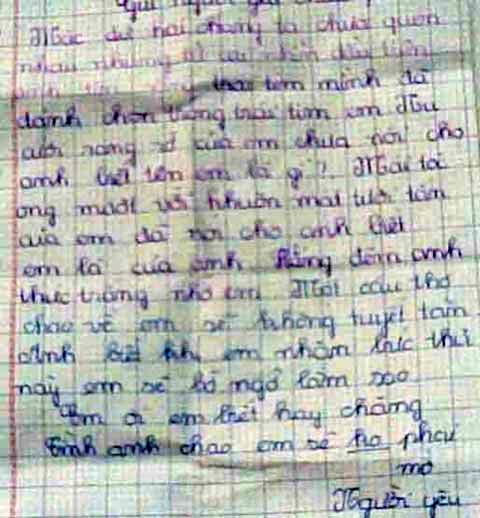 Mặc dù hai chúng ta chưa quen
nhau nhưng từ cái nhìn đầu tiên
trái tim mình đã
dánh chọn trong trái tim em Nụ
cười rạng rỡ của em chưa nói cho
anh biết tên em là gì? Mái tó
ong mượt với khuôn mặt tươi tắm
của em đã nói cho anh biết
em là của anh Hằng đêm anh
thức trắng nhớ em Một câu thơ
chao về em sẽ không tuyệt tam
Anh biết khi em nhậm bức thư
này em sẽ bỏ ngỏ lắm sao
Em ơi em biết hay chăng
Tình anh chao em sẽ ho phai
mo
Người yêu